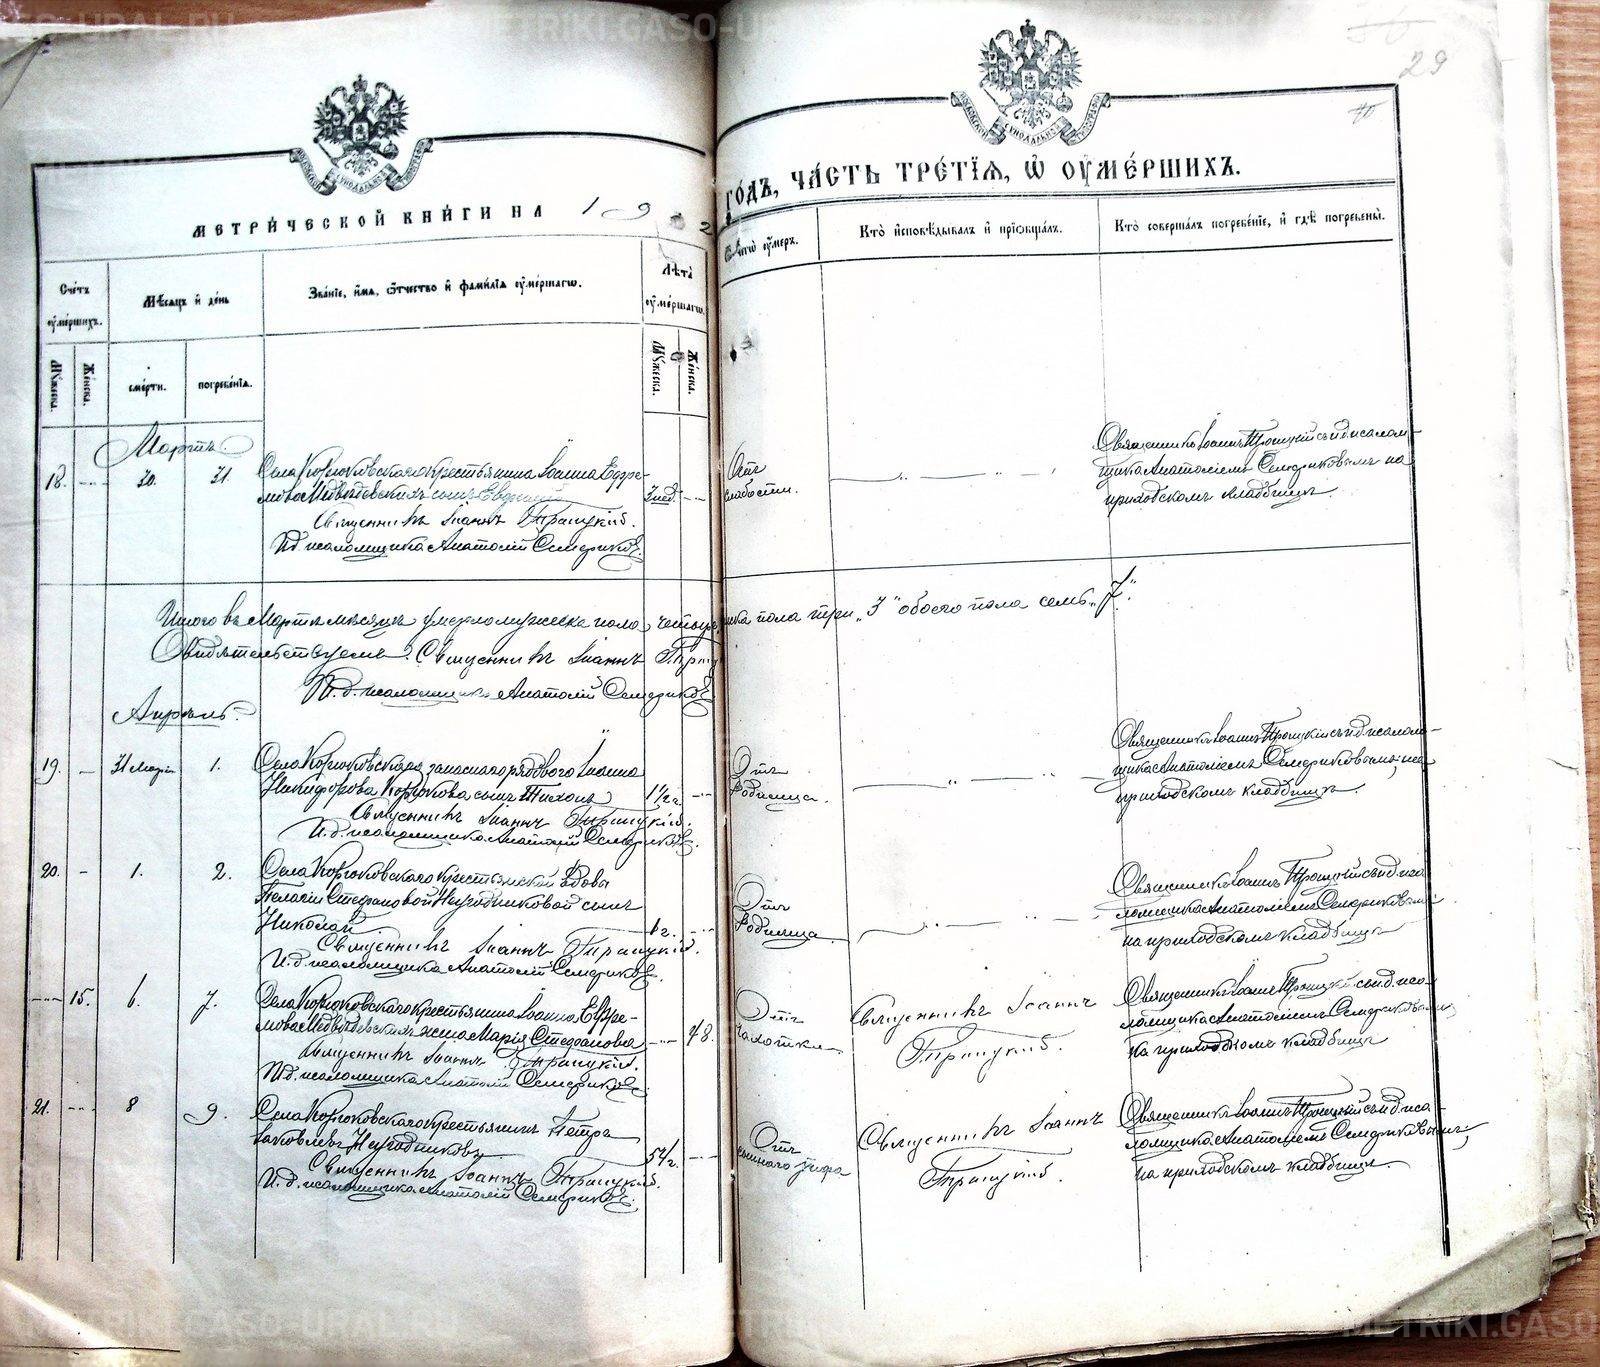 METRIKI.GASO-URAL.RU
29
МЕТРИ́ЧЕСКОЙ КНИ́ГИ НА 19 2
ГО́ДЪ, ЧА́СТЬ ТРЕ́ТІЯ, Ѡ ОУМЕ́РШИХЪ.
Сче́тъ оуме́ршихъ.
Мѣсяцъ и де́нь
Зва́ніе, и́мя, ѻ́тчество и фами́лія оуме́ршагѡ.
Лѣта̀ оуме́ршагѡ.
Ѿ чегѡ̀ оу́меръ.
Кто̀ исповѣ́дывалъ и пріѡбща́лъ.
Кто̀ соверша́лъ погребе́ніе, и гдѣ̀ погребены̀.
Мужеска.
Женска.
сме́рти.
погребе́нія.
Мужеска.
Женска.
Мартъ.
18. 30. 31. Села Корюковскаго крестьянина Іоанна Ефре-
мова Медвѣдевскихъ сынъ 3 нед.
Священникъ Іоаннъ Троицкій.
И.д. псаломщика Анатолій Семериковъ.
Отъ слабости.
Священникъ Іоаннъ Троицкій съ и.д. псалом-
щика Анатоліемъ Семериковымъ на
приходскомъ кладбищѣ.
Итого въ Мартѣ мѣсяцѣ умерло мужеска пола четыре, женска пола три „3“ обоего пола семь „7“.
Свидѣтельствуемъ: Священникъ Іоаннъ Троицкій
И.д. псаломщика Анатолій Семериковъ
Апрѣль.
19. 31 Марта 1. Села Корюковскаго запаснаго рядового Іоанна
Никифорова Корюкова сынъ Тихонъ 1 1/2 г.
Священникъ Іоаннъ Троицкій.
И.д. псаломщика Анатолій Семериковъ.
Отъ родимца.
Священникъ Іоаннъ Троицкій съ и.д. псалом-
щика Анатоліемъ Семериковымъ на
приходскомъ кладбищѣ.
20. 1. 2. Села Корюковскаго крестьянской вдовы
Пелагіи Стефановой Негодниковой сынъ
Николай 1 г.
Священникъ Іоаннъ Троицкій.
И.д. псаломщика Анатолій Семериковъ.
Отъ родимца.
Священникъ Іоаннъ Троицкій съ и.д. пса-
ломщика Анатоліемъ Семериковымъ
на приходскомъ кладбищѣ
15. 6. 7. Села Корюковскаго крестьянина Іоанна Ефре-
мова Медвѣдевскихъ жена Марія Стефанова 48.
Священникъ Іоаннъ Троицкій.
И.д. псаломщика Анатолій Семериковъ.
Отъ чахотки.
Священникъ Іоаннъ
Троицкій.
Священникъ Іоаннъ Троицкій съ и.д. пса-
ломщика Анатоліемъ Семериковымъ
на приходскомъ кладбищѣ
21. 8 9. Села Корюковскаго крестьянинъ Петръ
Яковлевъ Негодниковъ
Священникъ Іоаннъ Троицкій.
И.д. псаломщика Анатолій Семериковъ.
Отъ тифа
Священникъ Іоаннъ
Троицкій.
Священникъ Іоаннъ Троицкій съ и.д. пса-
ломщика Анатоліемъ Семериковымъ
на приходскомъ кладбищѣ.
METRIKI.GASO-URAL.RU